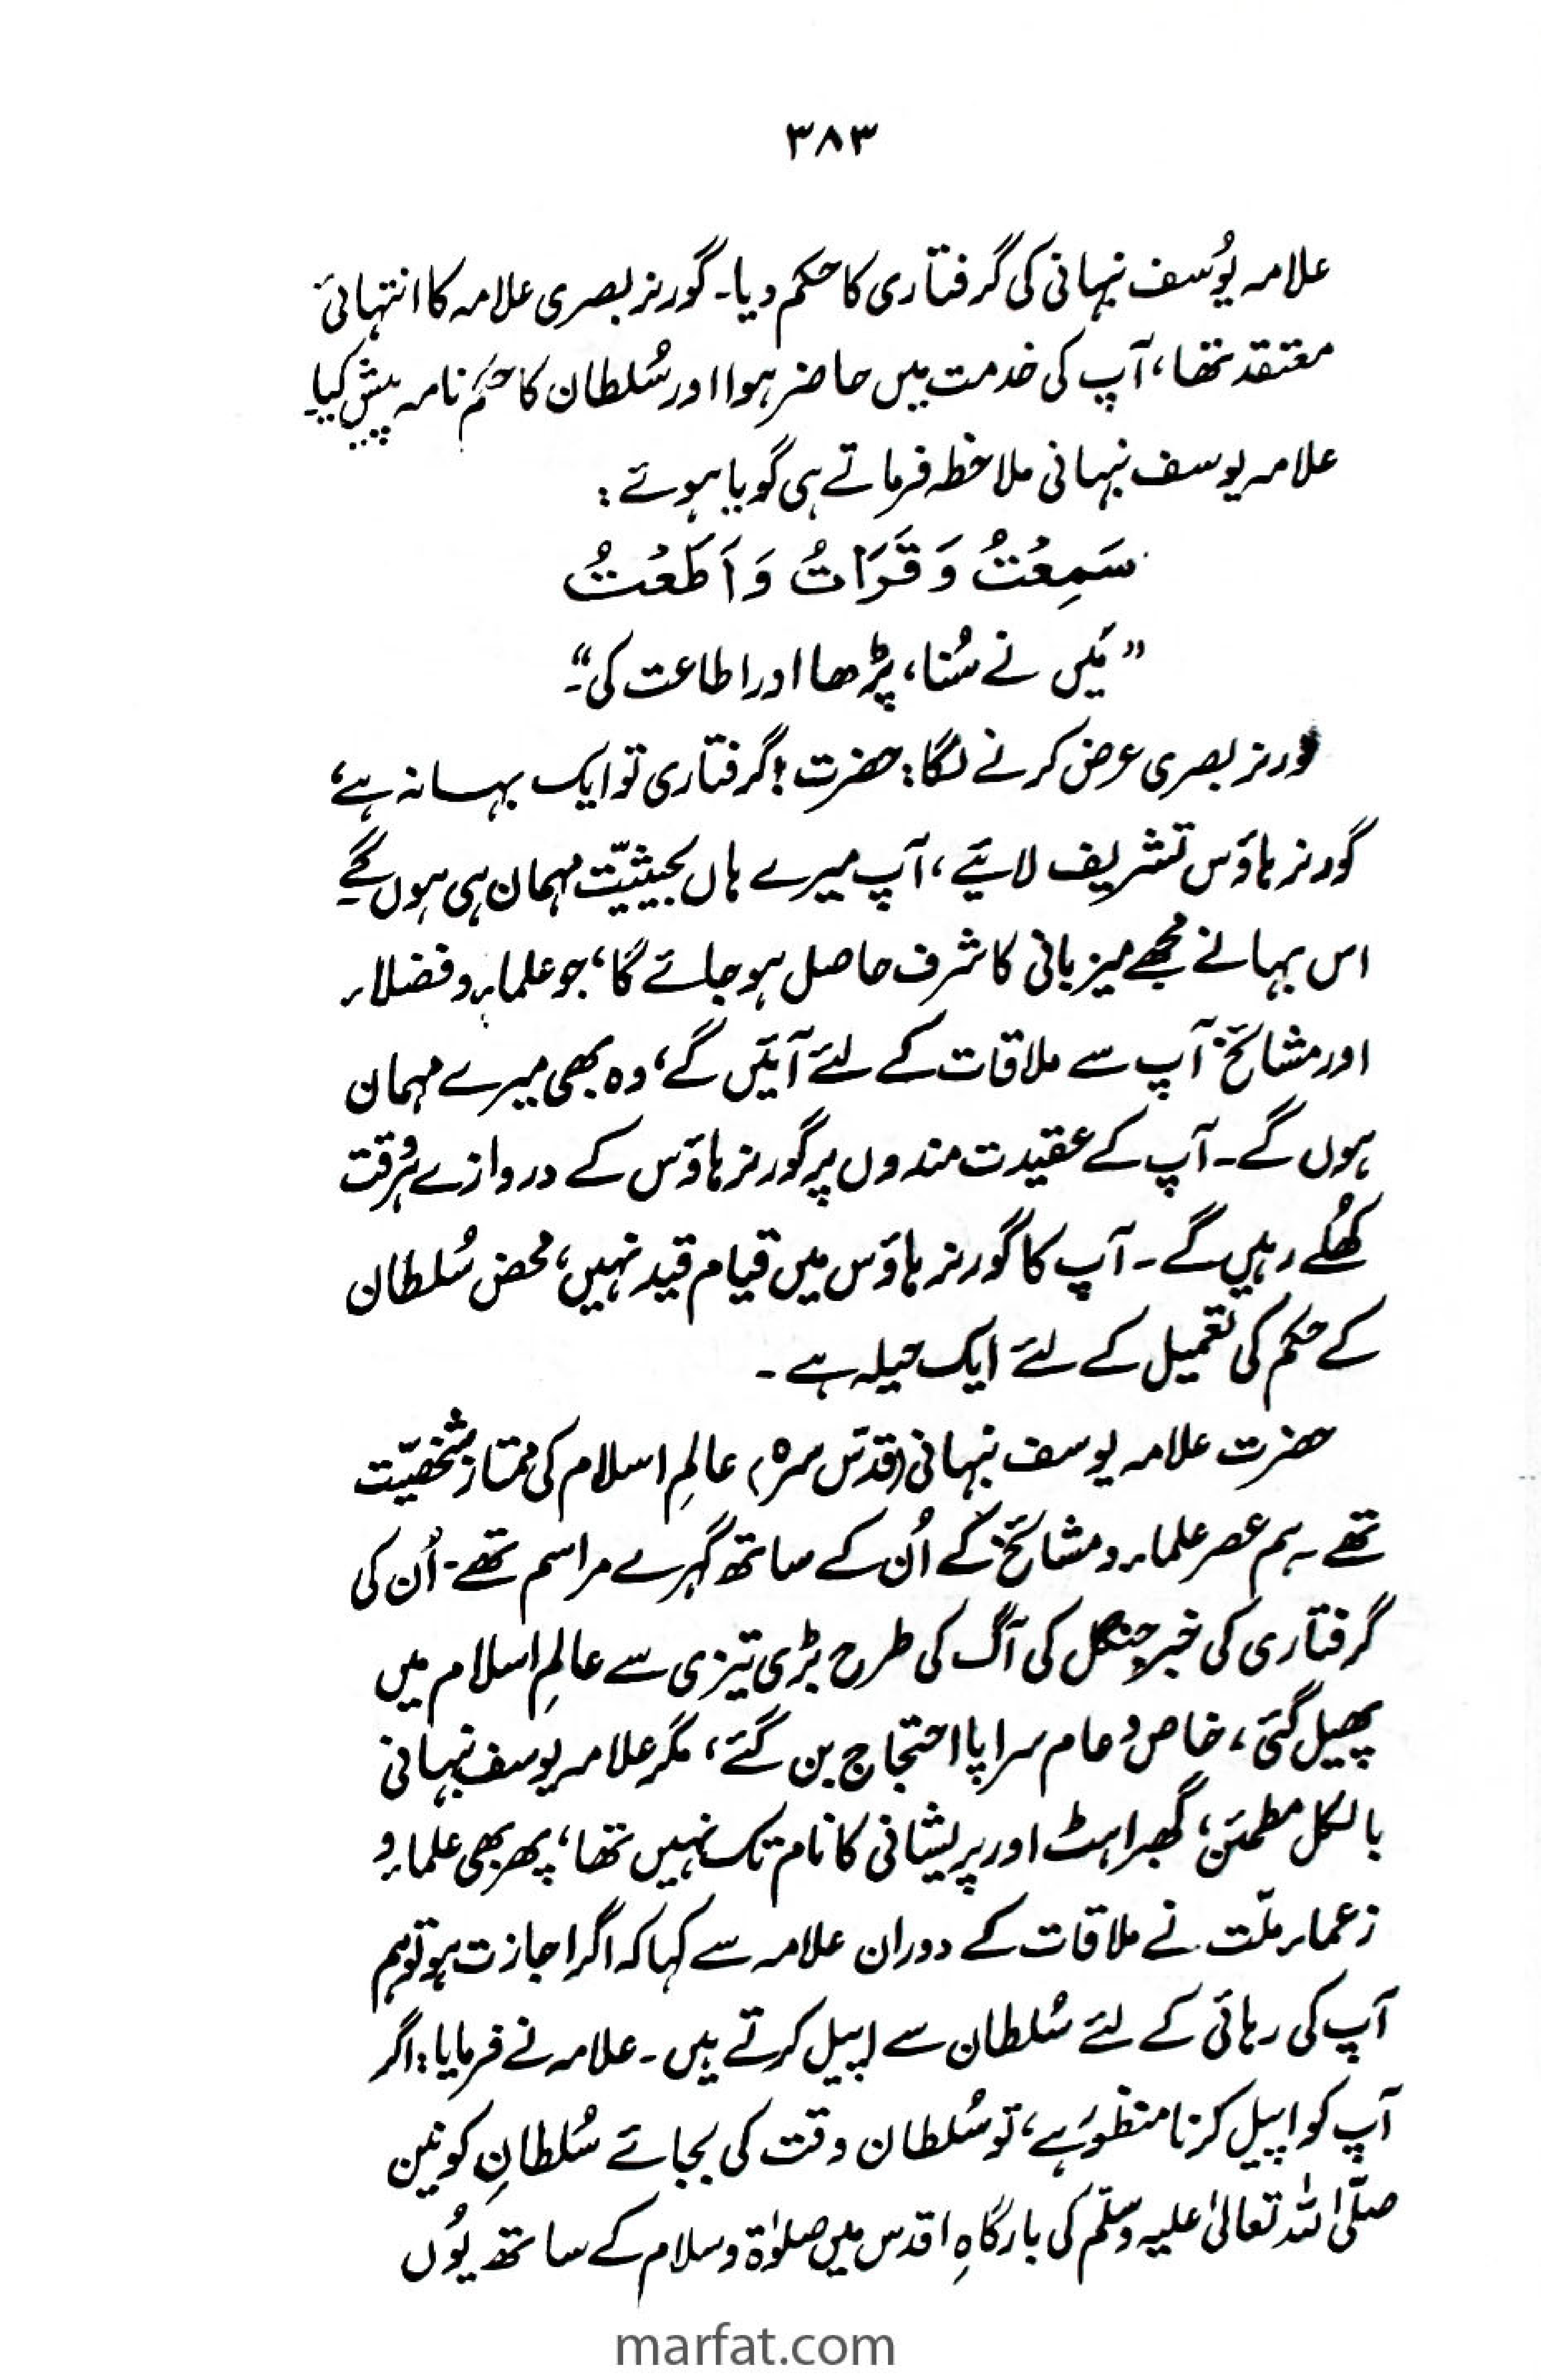 ۳۸۳
علامہ یُوسف نبہانی کی گرفتاری کا حکم دیا۔ گورنر بصری علامہ کا انتہائی
معتقد تھا، آپ کی خدمت میں حاضر ہوا اور سُلطان کا حکم نامہ پیش کیا۔
علامہ یوسف نبہانی ملاحظہ فرماتے ہی گویا ہوئے :
سَمِعْتُ وَ قَرَاتُ وَ اَطَعْتُ
”مَیں نے سُنا، پڑھا اور اطاعت کی“۔
گورنر بصری عرض کرنے لگا: حضرت! گرفتاری تو ایک بہانہ ہے،
گورنر ہاؤس تشریف لائیے، آپ میرے ہاں بحیثیّت مہمان ہی ہوں گے۔
اس بہانے مجھے میزبانی کا شرف حاصل ہو جائے گا، جو علماء و فضلاء
اور مشائخ آپ سے ملاقات کے لئے آئیں گے، وہ بھی میرے مہمان
ہوں گے۔ آپ کے عقیدت مندوں پر گورنر ہاؤس کے دروازے ہر وقت
کھُلے رہیں گے۔ آپ کا گورنر ہاؤس میں قیام قید نہیں، محض سُلطان
کے حکم کی تعمیل کے لئے ایک حیلہ ہے۔
حضرت علامہ یوسف نبہانی (قدّس سرہ) عالمِ اسلام کی ممتاز شخصیّت
تھے۔ ہم عصر علماء و مشائخ کے اُن کے ساتھ گہرے مراسم تھے۔ اُن کی
گرفتاری کی خبر جنگل کی آگ کی طرح بڑی تیزی سے عالمِ اسلام میں
پھیل گئی، خاص و عام سراپا احتجاج بن گئے، مگر علامہ یوسف نبہانی
بالکل مطمئن، گھبراہٹ اور پریشانی کا نام تک نہیں تھا، پھر بھی علماء و
زعماء ملّت نے ملاقات کے دوران علامہ سے کہا کہ اگر اجازت ہو تو ہم
آپ کی رہائی کے لئے سُلطان سے اپیل کرتے ہیں۔ علامہ نے فرمایا: اگر
آپ کو اپیل کرنا منظور ہے، تو سُلطان وقت کی بجائے سُلطانِ کونین
صلّی اللہ تعالیٰ علیہ وسلّم کی بارگاہِ اقدس میں صلوٰۃ و سلام کے ساتھ یُوں
marfat.com